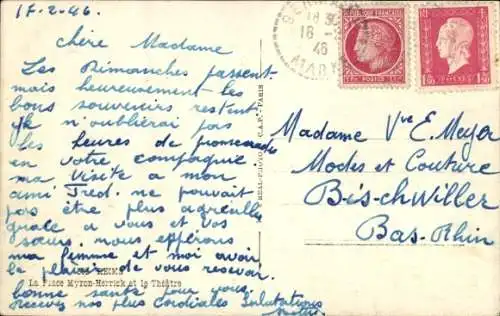 17-2-46.
chère Madame
Les Dimanches passent
mais heureusement les
bons souvenirs restent
je n'oublierai pas
les heures de promenades
en votre compagnie
ma Visite a mon
ami Fred. ne pouvait
pas être plus agréable
grace a vous et vos
sœurs. nous espérons
ma femme et moi avoir
le plaisir de vous revoir.
bonne sante pour vous.
Recevez nos plus cordiales Salutations
REIMS
La Place Myron-Herrick et le Théâtre
REAL-PHOTO C.A.P. - PARIS
18
46
MARNE
Madame Vve E. Meyer
Modes et Couture
Bischwiller
Bas-Rhin